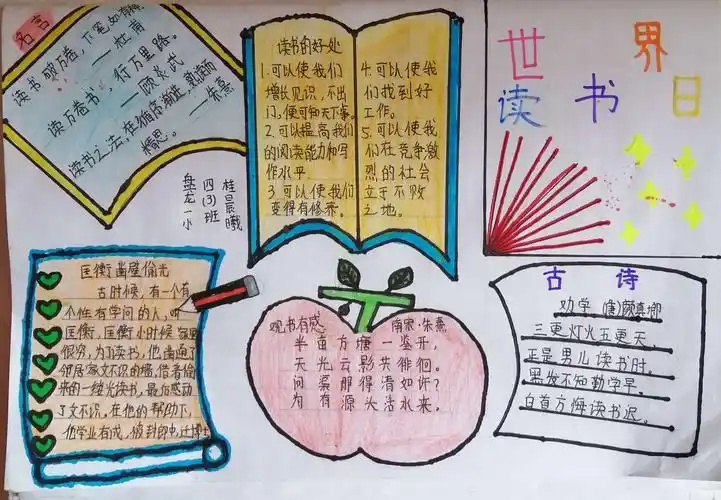 名言
读书破万卷，下笔如有神
——杜甫
读万卷书，行万里路。
——顾炎武
读书之法，在循序渐进，熟读而
精思。
——朱熹
盘龙一小
四(3)班
桂晨曦
读书的好处
1.可以使我们
增长见识，不出
门，便可知天下事。
2.可以提高我们
的阅读能力和写
作水平
3.可以使我们
变得有修养。
4.可以使我
们找到好
工作。
5.可以使我
们在竞争激
烈的社会
立于不败
之地。
世界
读书日
匡衡凿壁偷光
古时候，有一个有
个性有学问的人，叫
匡衡，匡衡小时候家里
很穷，为了读书，他凿通了
邻居家文不识的墙，借着偷
来的一缕光读书，最后感动
了文不识，在他的帮助下，
他学业有成，被封郎中，迁博士
观书有感 南宋·朱熹
半亩方塘一鉴开，
天光云影共徘徊。
问渠那得清如许？
为有源头活水来。
古诗
劝学 唐)颜真卿
三更灯火五更天，
正是男儿读书时。
黑发不知勤学早，
白首方悔读书迟。